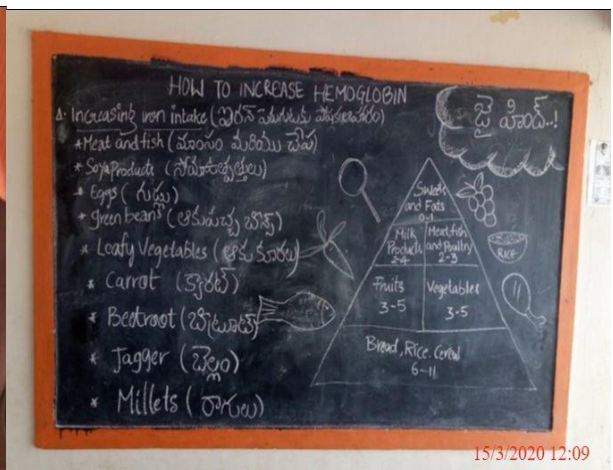 HOW TO INCREASE HEMOGLOBIN
1. Increasing iron intake (ఐరన్
* Meat and fish (మాంసం మరియు చేప)
* Soya Products (సోయా ఉత్పత్తులు)
* Eggs (గుడ్లు)
* green beans (ఆకుపచ్చ బీన్స్)
* Leafy Vegetables (ఆకు కూరలు)
* Carrot (క్యారట్)
* Beetroot (బీట్రూట్)
* Jagger (బెల్లం)
* Millets (రాగులు)
జై హింద్..!
Sweets
and Fats
0-1
Milk
Products
2-4
Meat, fish
and Poultry
2-3
Fruits
3-5
Vegetables
3-5
Bread, Rice, Cereal
6-11
RICE
15/3/2020 12:09